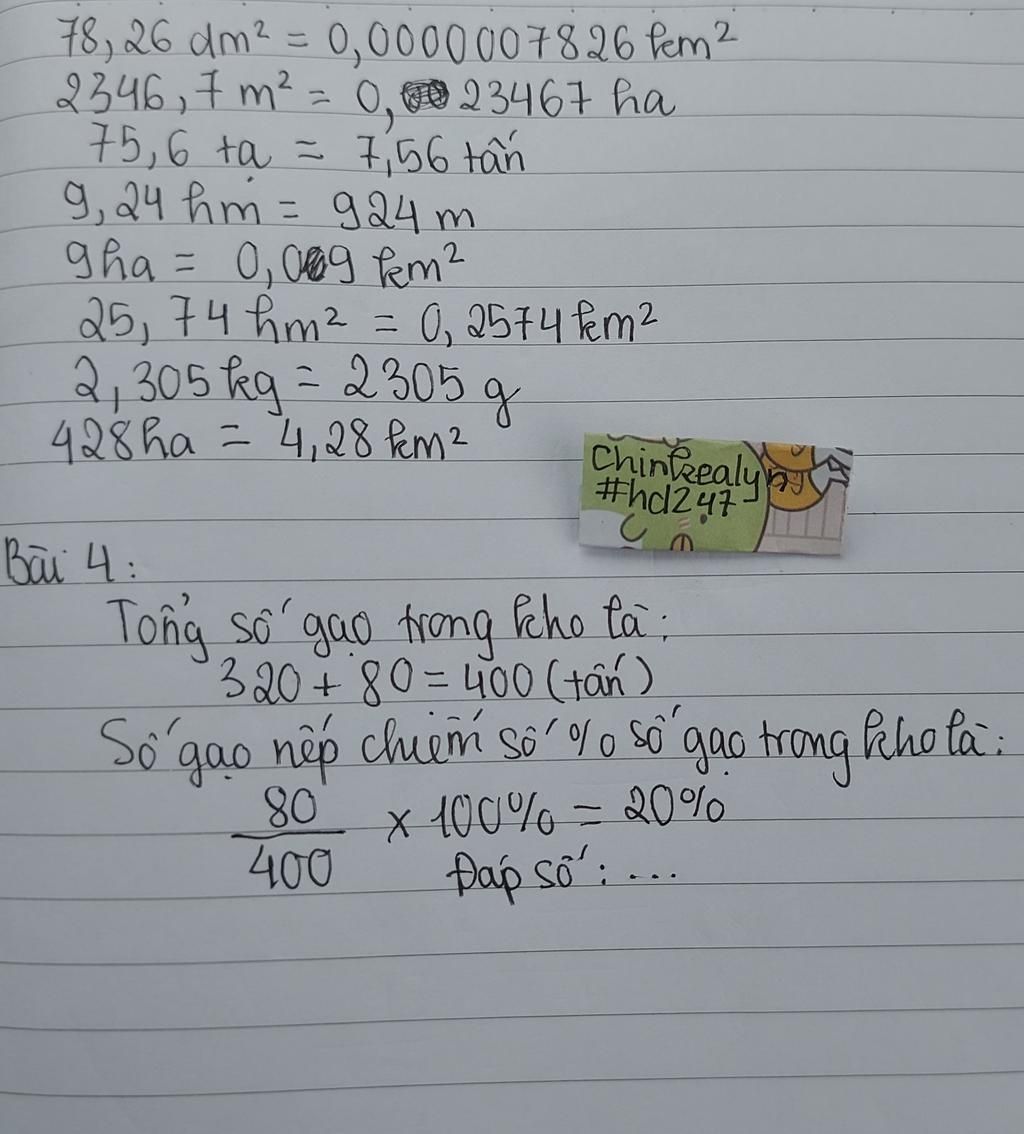 78,26 dm² = 0,0000007826 km²
2346,7 m² = 0,23467 ha
75,6 tạ = 7,56 tấn
9,24 hm = 924 m
9ha = 0,09 km²
25,74 hm² = 0,2574 km²
2,305 kg = 2305 g
428ha = 4,28 km²
Chinkealyn
#hd247
Bài 4:
Tổng số gạo trong kho là:
320 + 80 = 400 (tấn)
Số gạo nếp chiếm số % số gạo trong kho là:
80/400 × 100% = 20%
Đáp số: ...